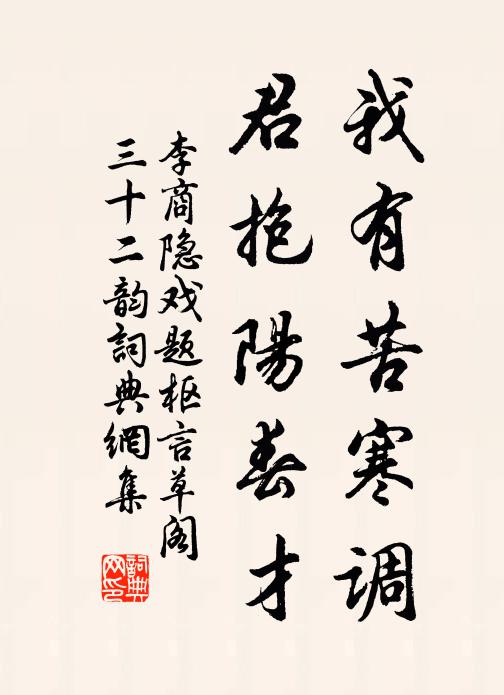 我有苦寒调
君抱陽春才
李商隐戏题枢言草阁
三十二韵詞典網集
詞典网印